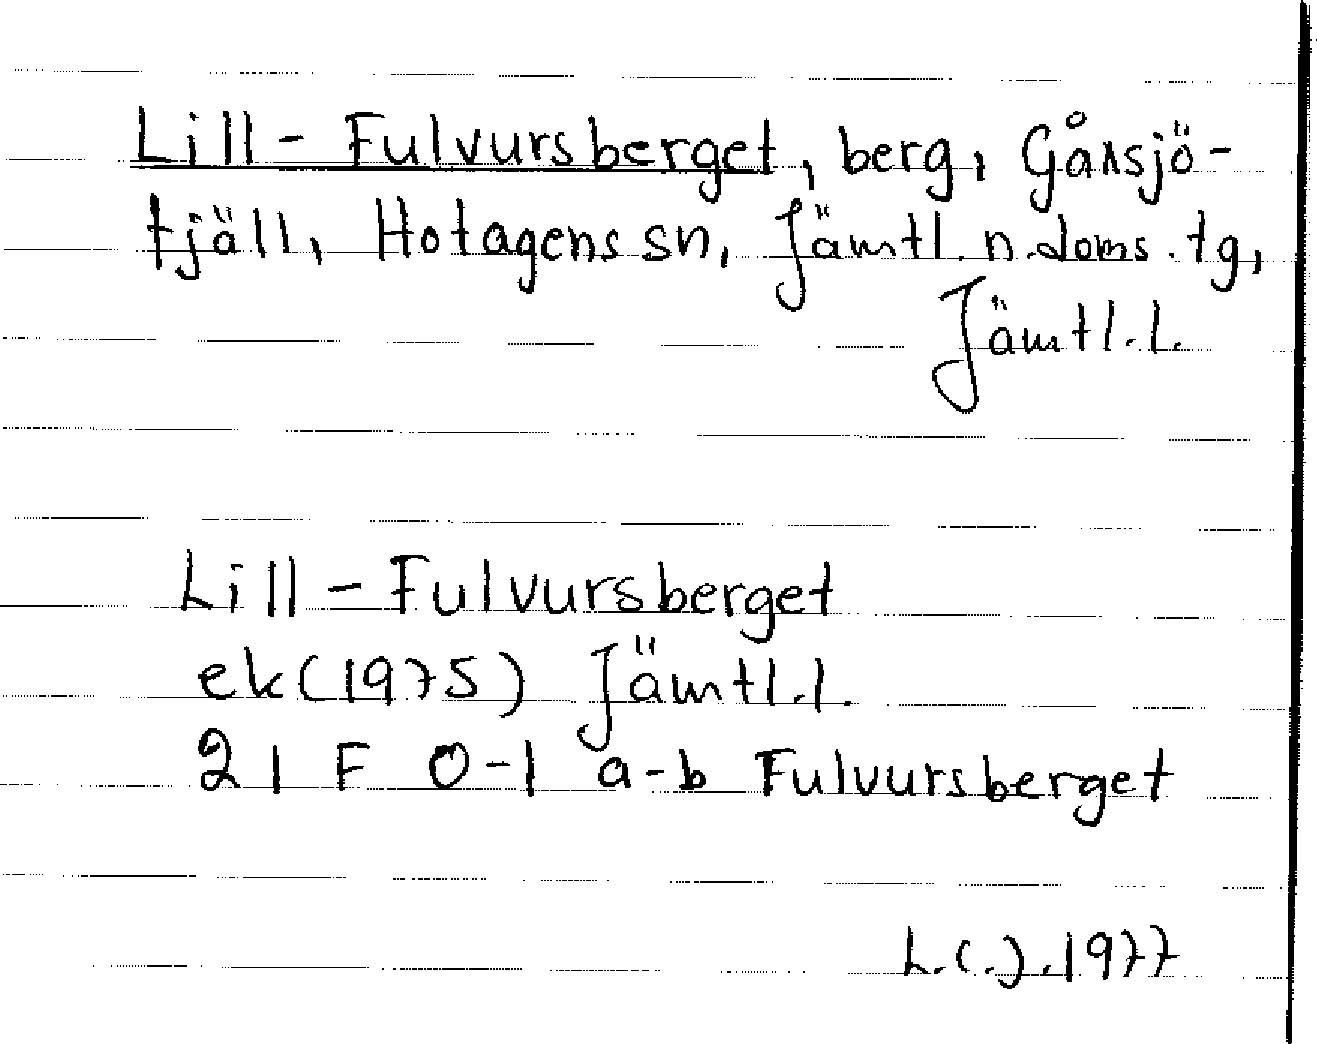 Lill-Fulvursberget, berg, Gånsjö-
fjäll, Hotagens sn, Jämtl. n. doms. tg,
Jämtl. L.
Lill-Fulvursberget
ek (1975) Jämtl. l.
21 F 0-1 a-b Fulvursberget
1977